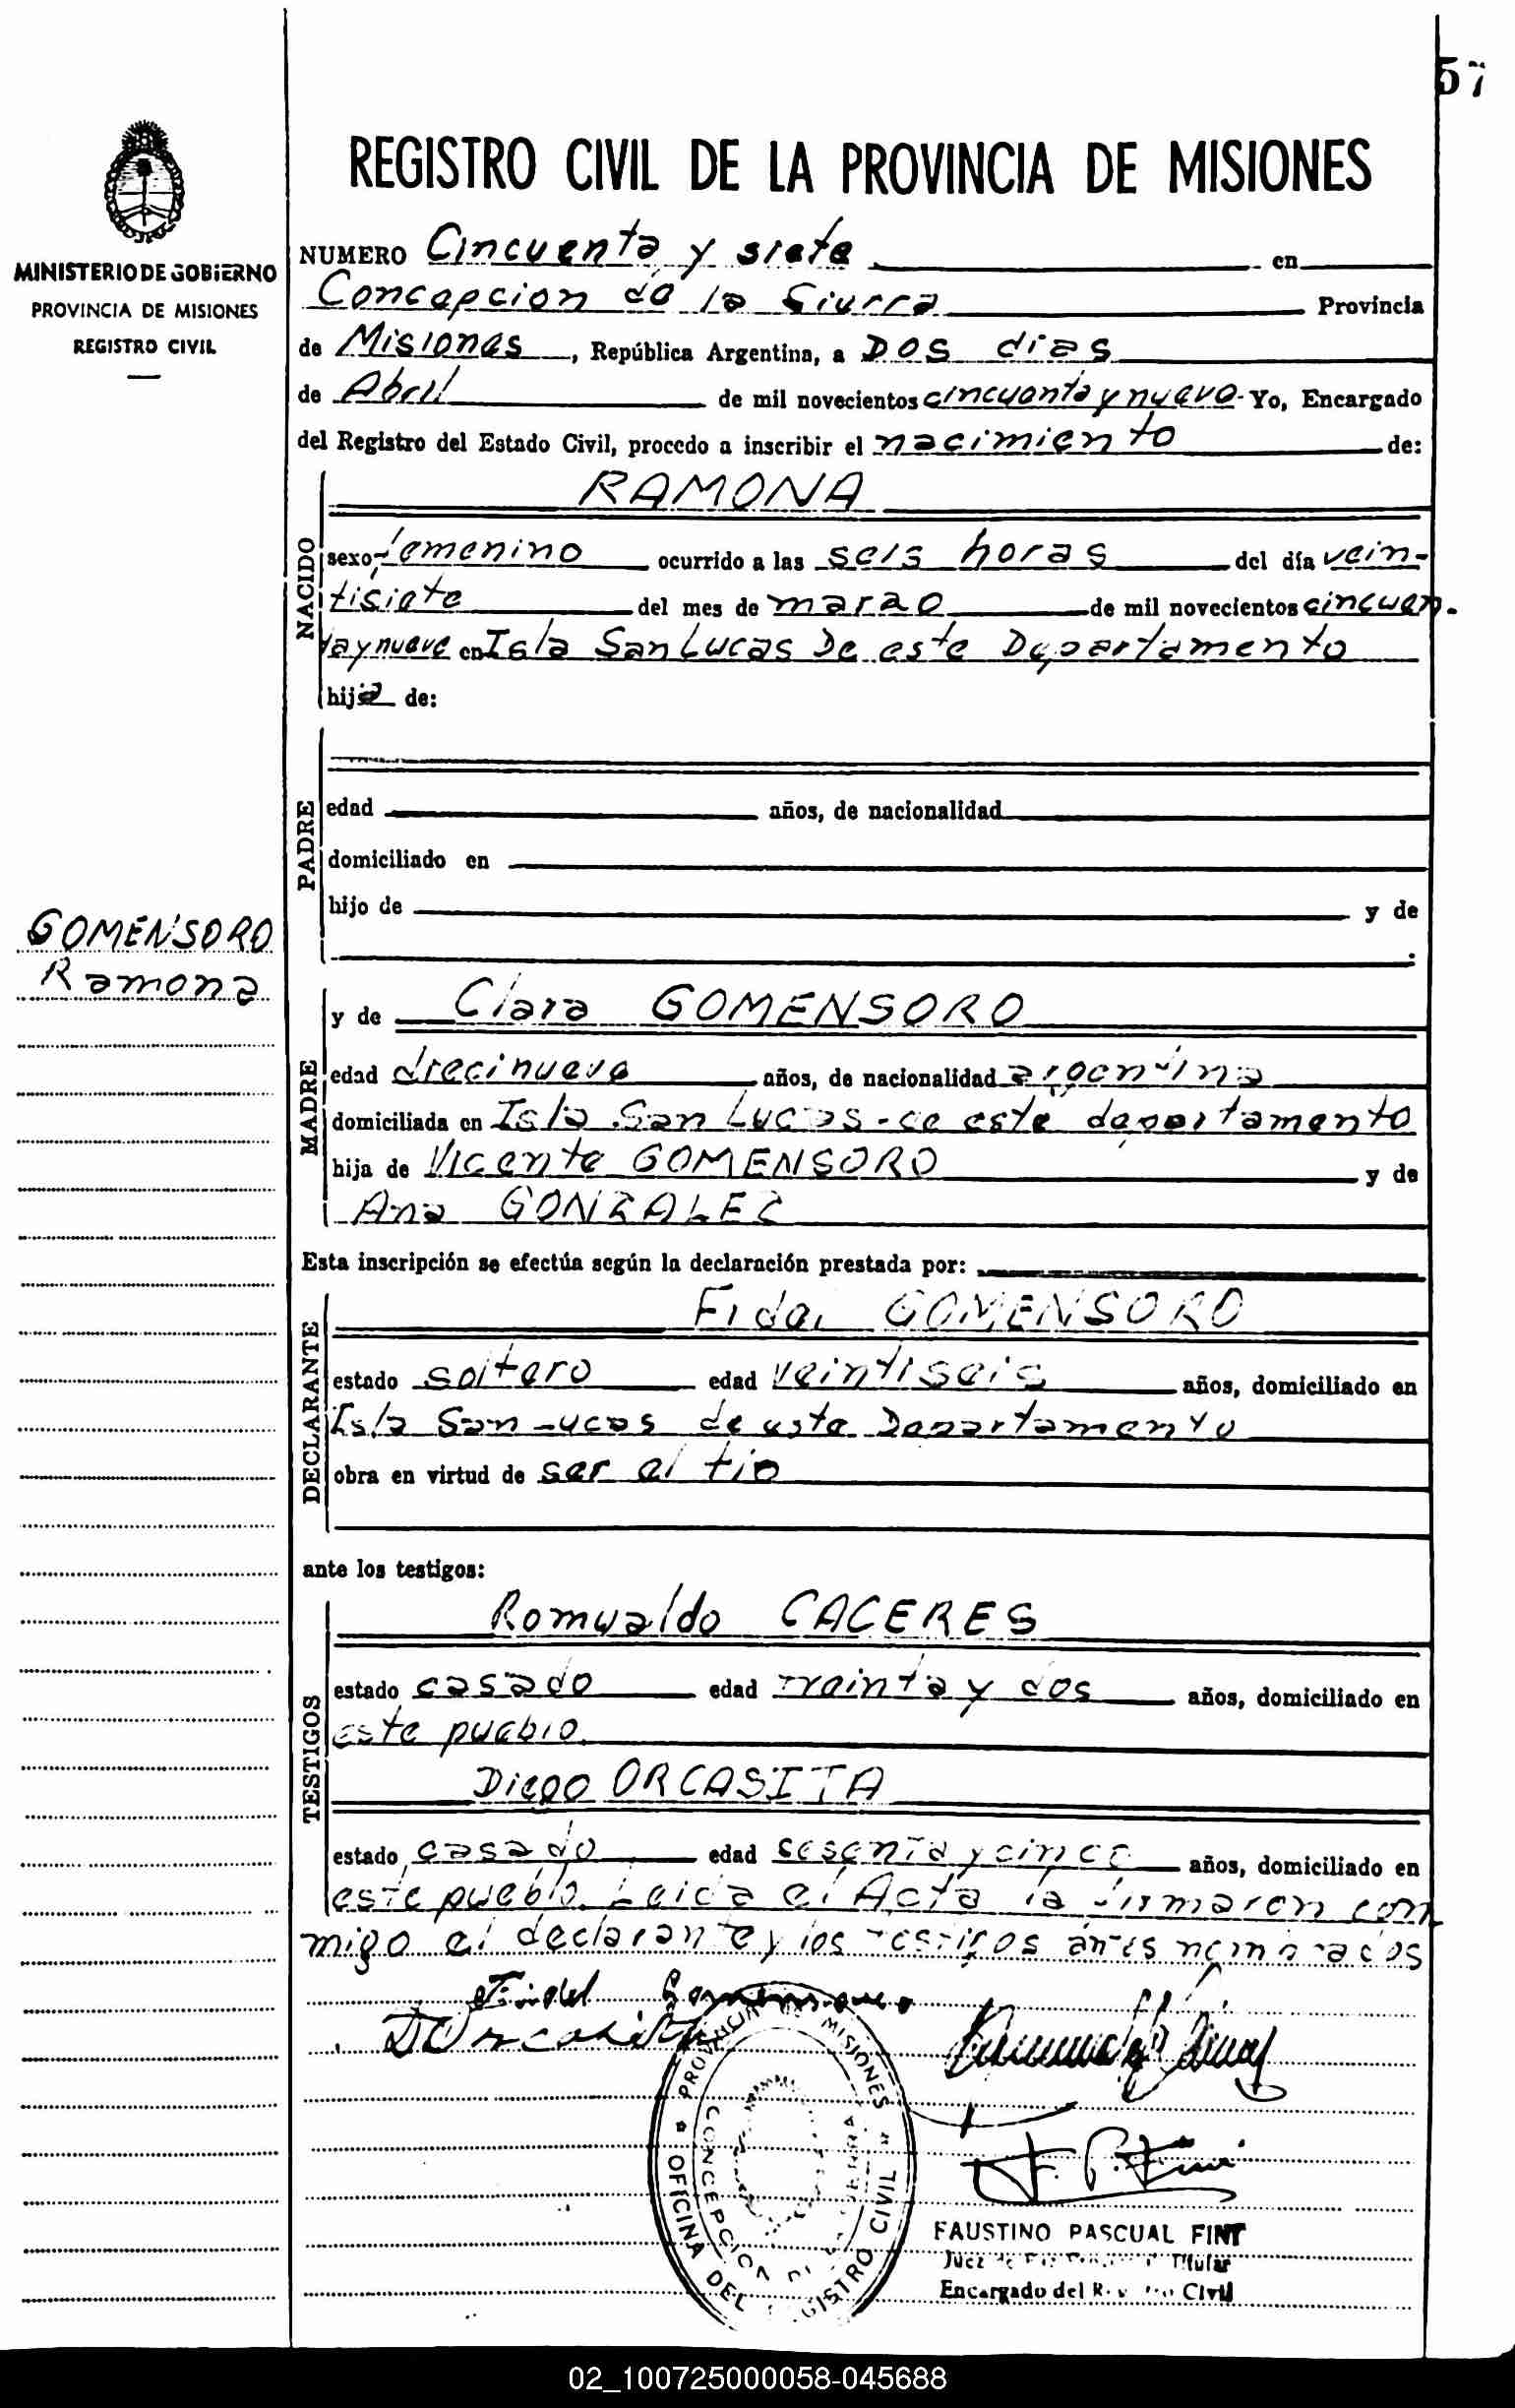 57
REGISTRO CIVIL DE LA PROVINCIA DE MISIONES
MINISTERIO DE GOBIERNO
PROVINCIA DE MISIONES
REGISTRO CIVIL
NUMERO Cincuenta y siete en
Concepcion de la Sierra Provincia
de Misiones, República Argentina, a Dos dias
de Abril de mil novecientos cincuenta y nueve- Yo, Encargado
del Registro del Estado Civil, procedo a inscribir el nacimiento de:
RAMONA
NACIDO
sexo femenino ocurrido a las seis horas del día vein-
tisiete del mes de marzo de mil novecientos cincuen-
ta y nueve en Isla San Lucas De este Departamento
hija de:
PADRE
edad años, de nacionalidad
domiciliado en
hijo de y de
GOMENSORO
Ramona
MADRE
y de Clara GOMENSORO
edad diecinueve años, de nacionalidad argentina
domiciliada en Isla San Lucas - de este departamento
hija de Vicente GOMENSORO y de
Ana GONZALEZ
Esta inscripción se efectúa según la declaración prestada por:
DECLARANTE
Fidel GOMENSORO
estado soltero edad veintiseis años, domiciliado en
Isla San Lucas de este Departamento
obra en virtud de ser el tio
ante los testigos:
TESTIGOS
Romualdo CACERES
estado casado edad treinta y dos años, domiciliado en
este pueblo.
Diego ORCASITA
estado casado edad sesenta y cinco años, domiciliado en
este pueblo. Leida el Acta la firmaron con
migo el declarante y los testigos antes nombrados
Fidel Gomensoro
D Orcasita
PROVINCIA DE MISIONES
OFICINA DEL REGISTRO CIVIL
CONCEPCION DE LA SIERRA
FAUSTINO PASCUAL FINT
Juez de Paz Titular
Encargado del Registro Civil
02_100725000058-045688